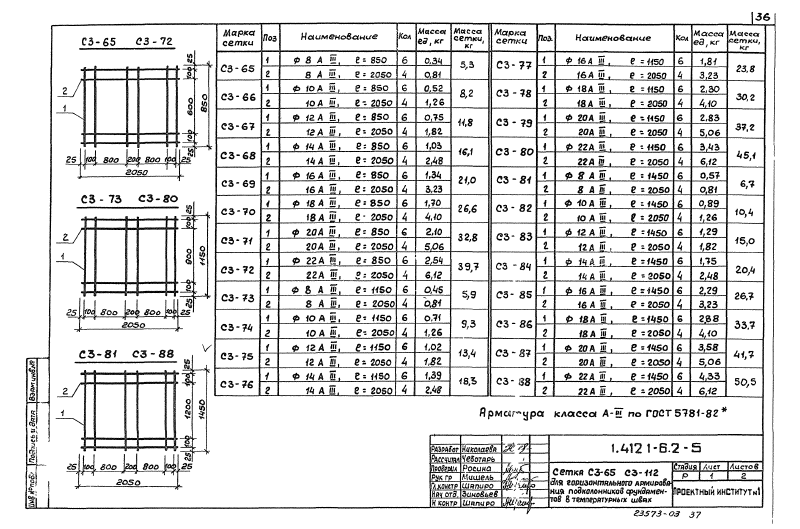 36
С3-65 С3-72
25
100
600
850
100
25
2
1
25 100 800 200 800 100 25
2050
С3-73 С3-80
25
100
900
1150
100
25
2
1
25 100 800 200 800 100 25
2050
С3-81 С3-88
25
100
1200
1450
100
25
2
1
25 100 800 200 800 100 25
2050
Марка сетки Поз Наименование Кол Масса ед, кг Масса сетки, кг
С3-65 1 Ф 8 А III, ℓ = 850 6 0,34 5,3
2 8 А III, ℓ = 2050 4 0,81
С3-66 1 Ф 10 А III, ℓ = 850 6 0,52 8,2
2 10 А III, ℓ = 2050 4 1,26
С3-67 1 Ф 12 А III, ℓ = 850 6 0,75 11,8
2 12 А III, ℓ = 2050 4 1,82
С3-68 1 Ф 14 А III, ℓ = 850 6 1,03 16,1
2 14 А III, ℓ = 2050 4 2,48
С3-69 1 Ф 16 А III, ℓ = 850 6 1,34 21,0
2 16 А III, ℓ = 2050 4 3,23
С3-70 1 Ф 18 А III, ℓ = 850 6 1,70 26,6
2 18 А III, ℓ = 2050 4 4,10
С3-71 1 Ф 20 А III, ℓ = 850 6 2,10 32,8
2 20 А III, ℓ = 2050 4 5,06
С3-72 1 Ф 22 А III, ℓ = 850 6 2,54 39,7
2 22 А III, ℓ = 2050 4 6,12
С3-73 1 Ф 8 А III, ℓ = 1150 6 0,45 5,9
2 8 А III, ℓ = 2050 4 0,81
С3-74 1 Ф 10 А III, ℓ = 1150 6 0,71 9,3
2 10 А III, ℓ = 2050 4 1,26
С3-75 1 Ф 12 А III, ℓ = 1150 6 1,02 13,4
2 12 А III, ℓ = 2050 4 1,82
С3-76 1 Ф 14 А III, ℓ = 1150 6 1,39 18,3
2 14 А III, ℓ = 2050 4 2,48
Марка сетки Поз. Наименование Кол Масса ед, кг Масса сетки, кг
С3-77 1 Ф 16 А III, ℓ = 1150 6 1,81 23,8
2 16 А III, ℓ = 2050 4 3,23
С3-78 1 Ф 18 А III, ℓ = 1150 6 2,30 30,2
2 18 А III, ℓ = 2050 4 4,10
С3-79 1 Ф 20 А III, ℓ = 1150 6 2.83 37,2
2 20 А III, ℓ = 2050 4 5,06
С3-80 1 Ф 22 А III, ℓ = 1150 6 3,43 45,1
2 22 А III, ℓ = 2050 4 6,12
С3-81 1 Ф 8 А III, ℓ = 1450 6 0,57 6,7
2 8 А III, ℓ = 2050 4 0,81
С3-82 1 Ф 10 А III, ℓ = 1450 6 0,89 10,4
2 10 А III, ℓ = 2050 4 1,26
С3-83 1 Ф 12 А III, ℓ = 1450 6 1,29 15,0
2 12 А III, ℓ = 2050 4 1,82
С3-84 1 Ф 14 А III, ℓ = 1450 6 1,75 20,4
2 14 А III, ℓ = 2050 4 2,48
С3-85 1 Ф 16 А III, ℓ = 1450 6 2,29 26,7
2 16 А III, ℓ = 2050 4 3,23
С3-86 1 Ф 18 А III, ℓ = 1450 6 2,88 33,7
2 18 А III, ℓ = 2050 4 4,10
С3-87 1 Ф 20 А III, ℓ = 1450 6 3,58 41,7
2 20 А III, ℓ = 2050 4 5,06
С3-88 1 Ф 22 А III, ℓ = 1450 6 4,33 50,5
2 22 А III, ℓ = 2050 4 6,12
Арматура класса А-III по ГОСТ 5781-82*
Разработ Николаева
Рассчитал Чеботарь
Проверил Росина
Рук гр Мишель
Гл.контр Шапиро
Нач отд. Зиновьев
Н контр Шапиро
1.412 1-6.2-5
Сетка С3-65 С3-112
для горизонтального армирова-
ния подколонников фундамен-
тов в температурных швах
Стадия Лист Листов
Р 1 2
ПРОЕКТНЫЙ ИНСТИТУТ №1
Инв № подл. Подпись и дата Взам инв №
23573-03 37